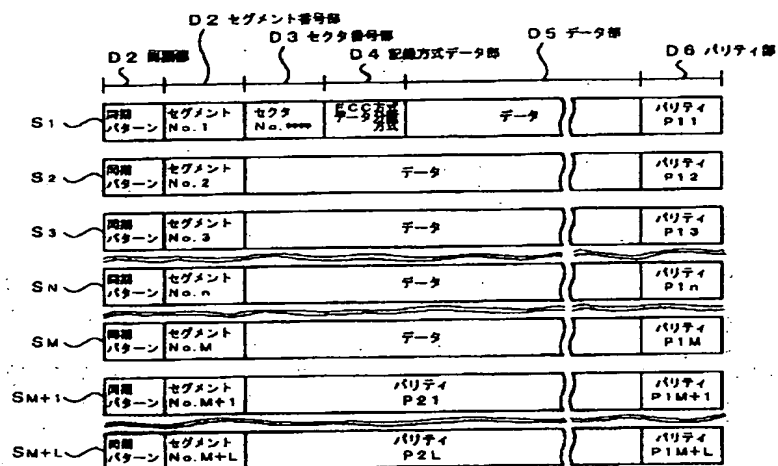 D2 同期部
D2 セグメント番号部
D3 セクタ番号部
D4 記録方式データ部
D5 データ部
D6 パリティ部
S1
同期パターン
セグメント No.1
セクタ No.****
ECC方式
方式
データ
パリティ P11
S2
同期パターン
セグメント No.2
データ
パリティ P12
S3
同期パターン
セグメント No.3
データ
パリティ P13
SN
同期パターン
セグメント No.n
データ
パリティ P1n
SM
同期パターン
セグメント No.M
データ
パリティ P1M
SM+1
同期パターン
セグメント No.M+1
パリティ P21
パリティ P1M+1
SM+L
同期パターン
セグメント No.M+L
パリティ P2L
パリティ P1M+L